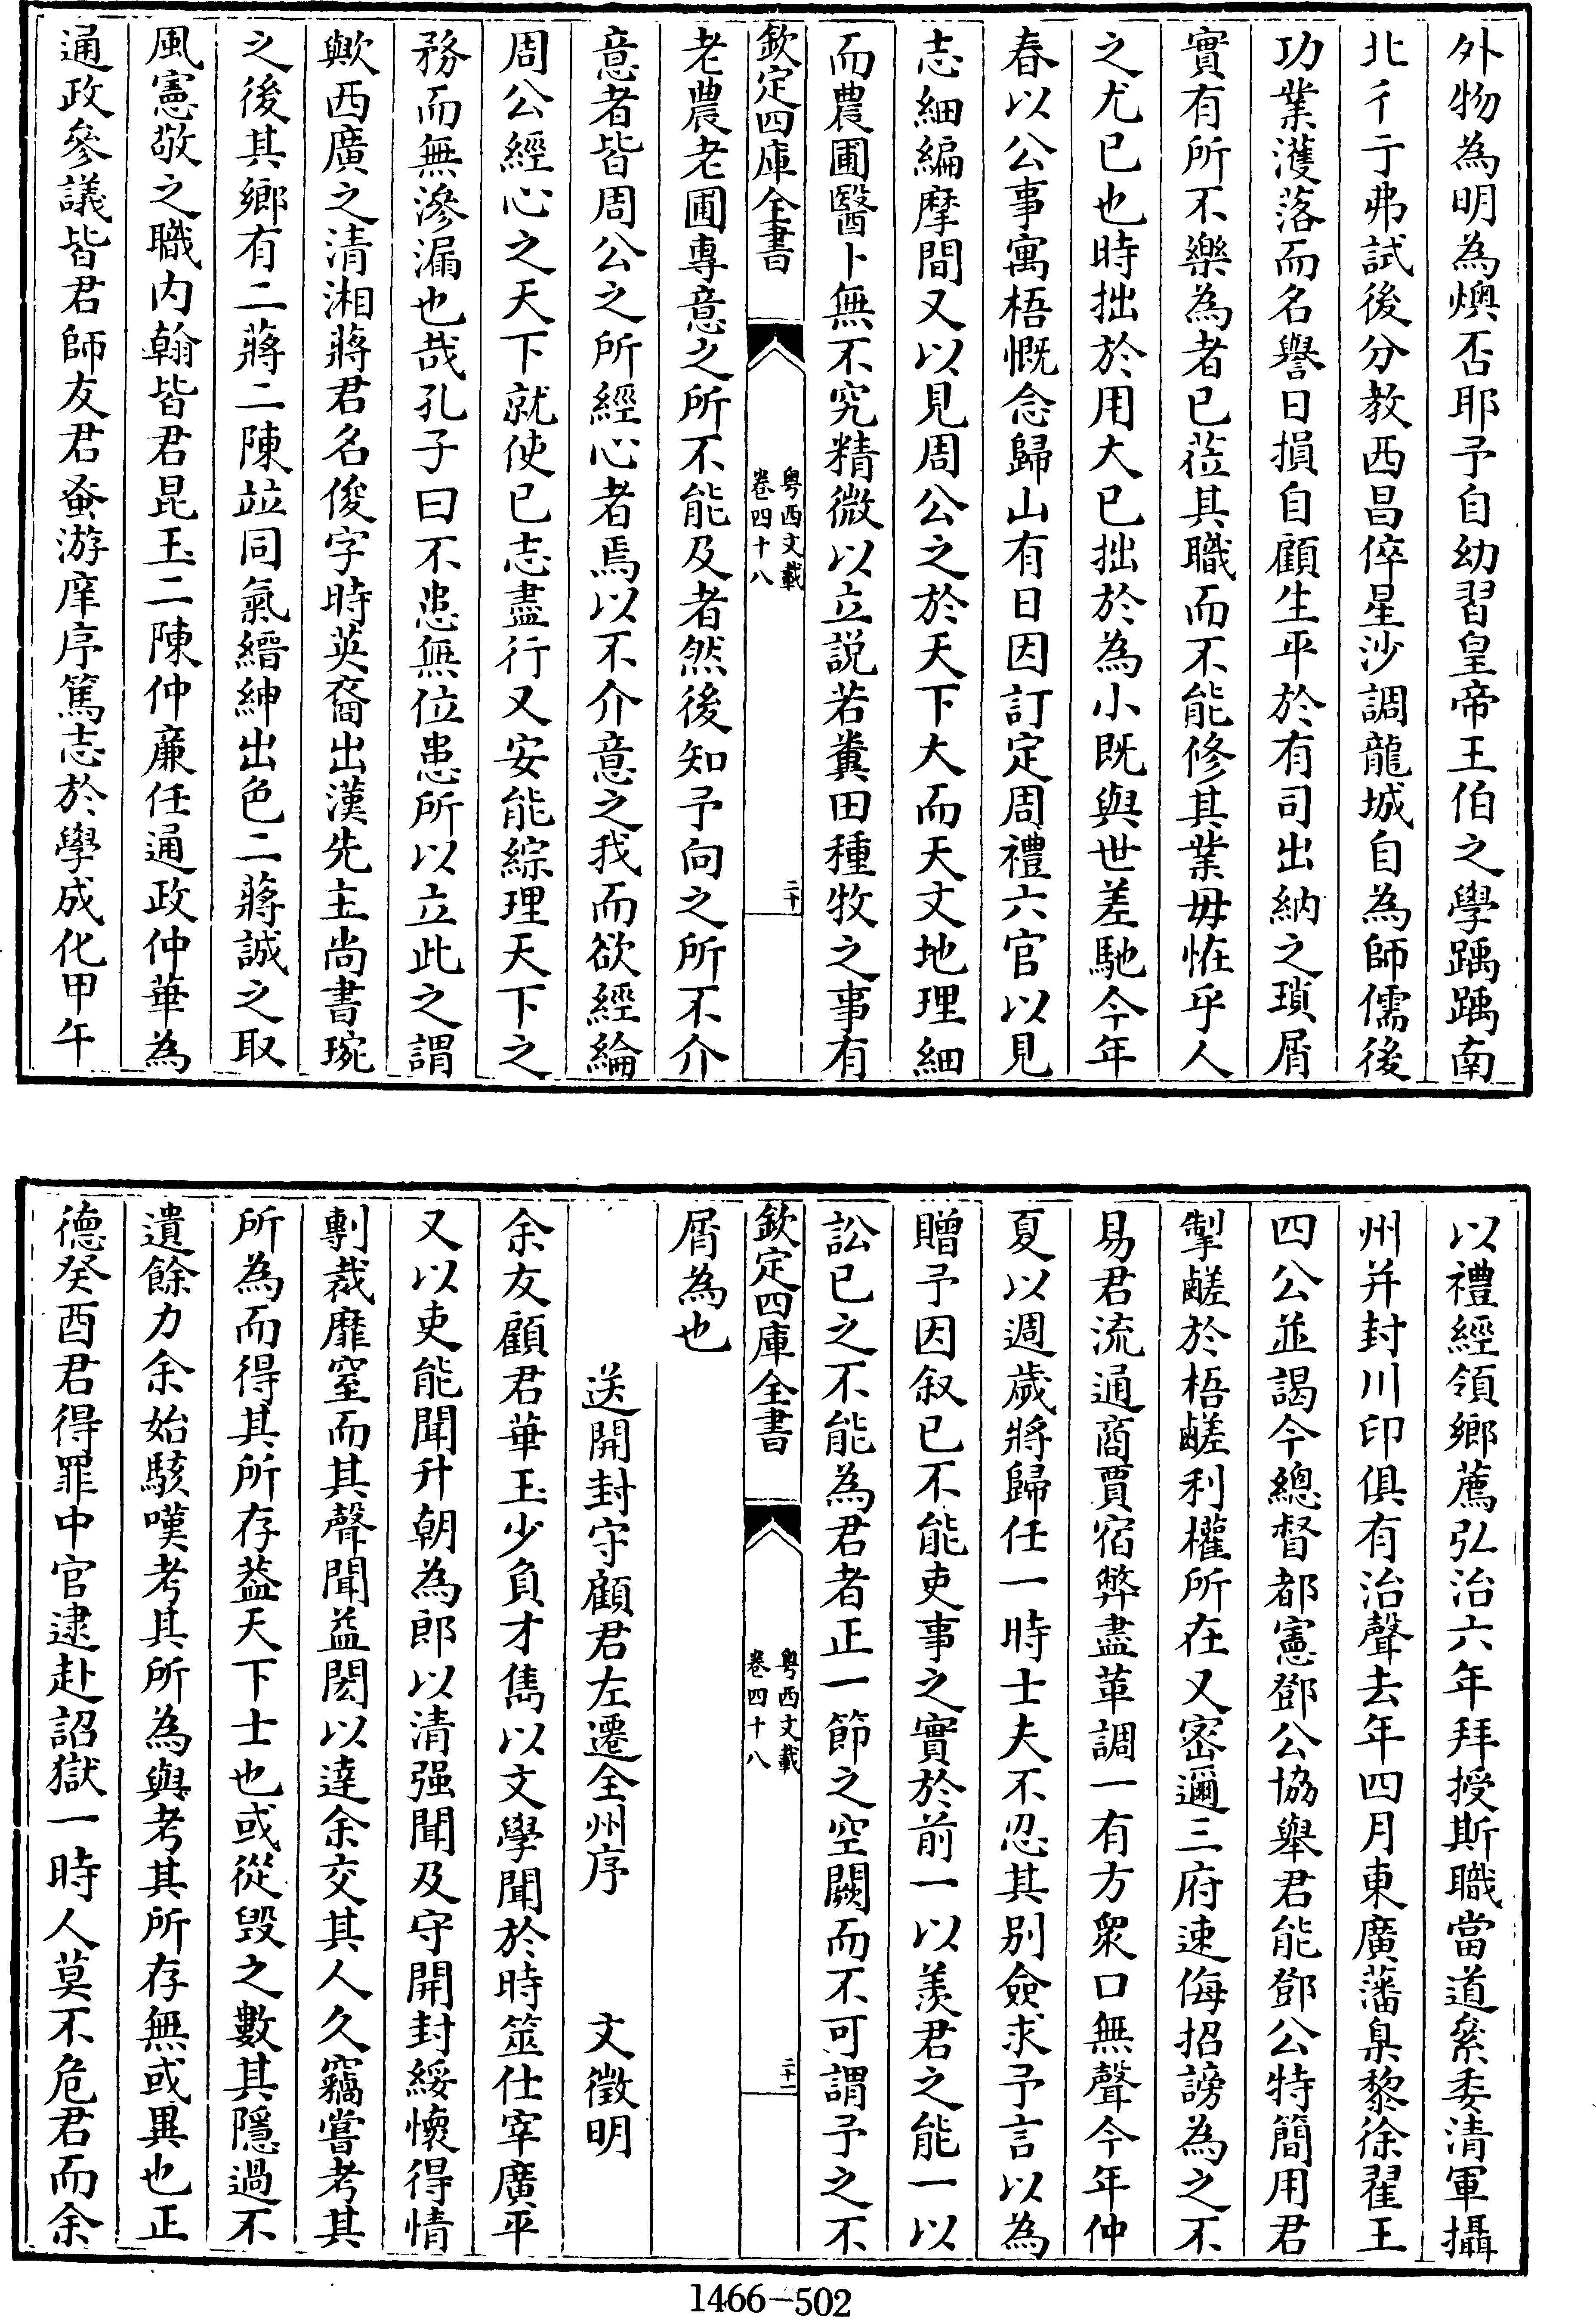 外物為明為燠否耶予自幼習皇帝王伯之學踽踽南
北彳亍弗試後分教西昌倅星沙調龍城自為師儒後
功業濩落而名譽日損自顧生平於有司出納之瑣屑
實有所不樂為者已蒞其職而不能修其業毋恠乎人
之尤已也時拙於用大已拙於為小既與世差馳今年
春以公事寓梧慨念歸山有日因訂定周禮六官以見
志細編摩間又以見周公之於天下大而天文地理細
而農圃醫卜無不究精微以立説若糞田種牧之事有
欽定四庫全書
粤西文載
卷四十八
二十
老農老圃專意之所不能及者然後知予向之所不介
意者皆周公之所經心者焉以不介意之我而欲經綸
周公經心之天下就使已志盡行又安能綜理天下之
務而無滲漏也哉孔子曰不患無位患所以立此之謂
歟西廣之清湘蔣君名俊字時英裔出漢先主尚書琬
之後其鄉有二蔣二陳竝同氣縉紳出色二蔣誠之取
風憲敬之職内翰皆君昆玉二陳仲廉任通政仲華為
通政參議皆君師友君蚤游庠序篤志於學成化甲午
以禮經領鄉薦弘治六年拜授斯職當道絫委清軍攝
州并封川印俱有治聲去年四月東廣藩臬黎徐翟王
四公並謁今總督都憲鄧公協舉君能鄧公特簡用君
掣鹺於梧鹺利權所在又密邇三府速侮招謗為之不
易君流通商賈宿弊盡革調一有方衆口無聲今年仲
夏以週歲將歸任一時士夫不忍其别僉求予言以為
贈予因叙已不能吏事之實於前一以羡君之能一以
訟已之不能為君者正一節之空闕而不可謂予之不
欽定四庫全書
粤西文載
卷四十八
二十一
屑為也
送開封守顧君左遷全州序 文徵明
余友顧君華玉少負才雋以文學聞於時筮仕宰廣平
又以吏能聞升朝為郎以清强聞及守開封綏懷得情
剸裁靡窒而其聲聞益閎以達余交其人久竊嘗考其
所為而得其所存葢天下士也或從毀之數其隱過不
遺餘力余始駭嘆考其所為與考其所存無或異也正
德癸酉君得罪中官逮赴詔獄一時人莫不危君而余
1466—502